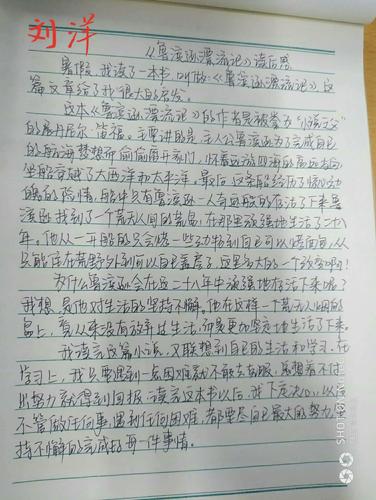 刘洋
《鲁滨逊漂流记》读后感
暑假,我读了一本书,叫做《鲁滨逊漂流记》这
篇文章给了我很大的启发。
这本《鲁滨逊漂流记》的作者是被誉为“小说之父”
的展丹尼尔·笛福。主要讲的是主人公鲁滨逊为了完成自己
的航海梦想而偷偷离开家门,怀着远游四海的高远志向
坐船穿越了大西洋和太平洋。最后这条船经历了惊心动
魄的险情,船中只有鲁滨逊一人奇迹般的存活了下来鲁
滨逊找到了个荒无人间的荒岛,在那里顽强地生活了二十八
年。他从一开始的只会烧一些动物到自己可以烤面包,从
只能住在荒野外到可以自己盖房子,这是多大的一个改变啊!
为什么鲁滨逊会在这二十八年中顽强地存活下来呢?
我想是他对生活的坚持不懈。他在这样一个荒无人烟的
岛上,看从来没有放弃过生活,而是更加坚定地生活了下来。
我读完这篇小说,又联想到自己的生活和学习,在
学习上,我只要遇到一点困难就不敢去克服,总想着不付
出努力就得到回报,读完这本书以后,我下定决心,以后
不管做任何事,遇到任何困难,都要尽自己最大的努力,坚
持不懈的完成好每一件事情。
SHOT ON